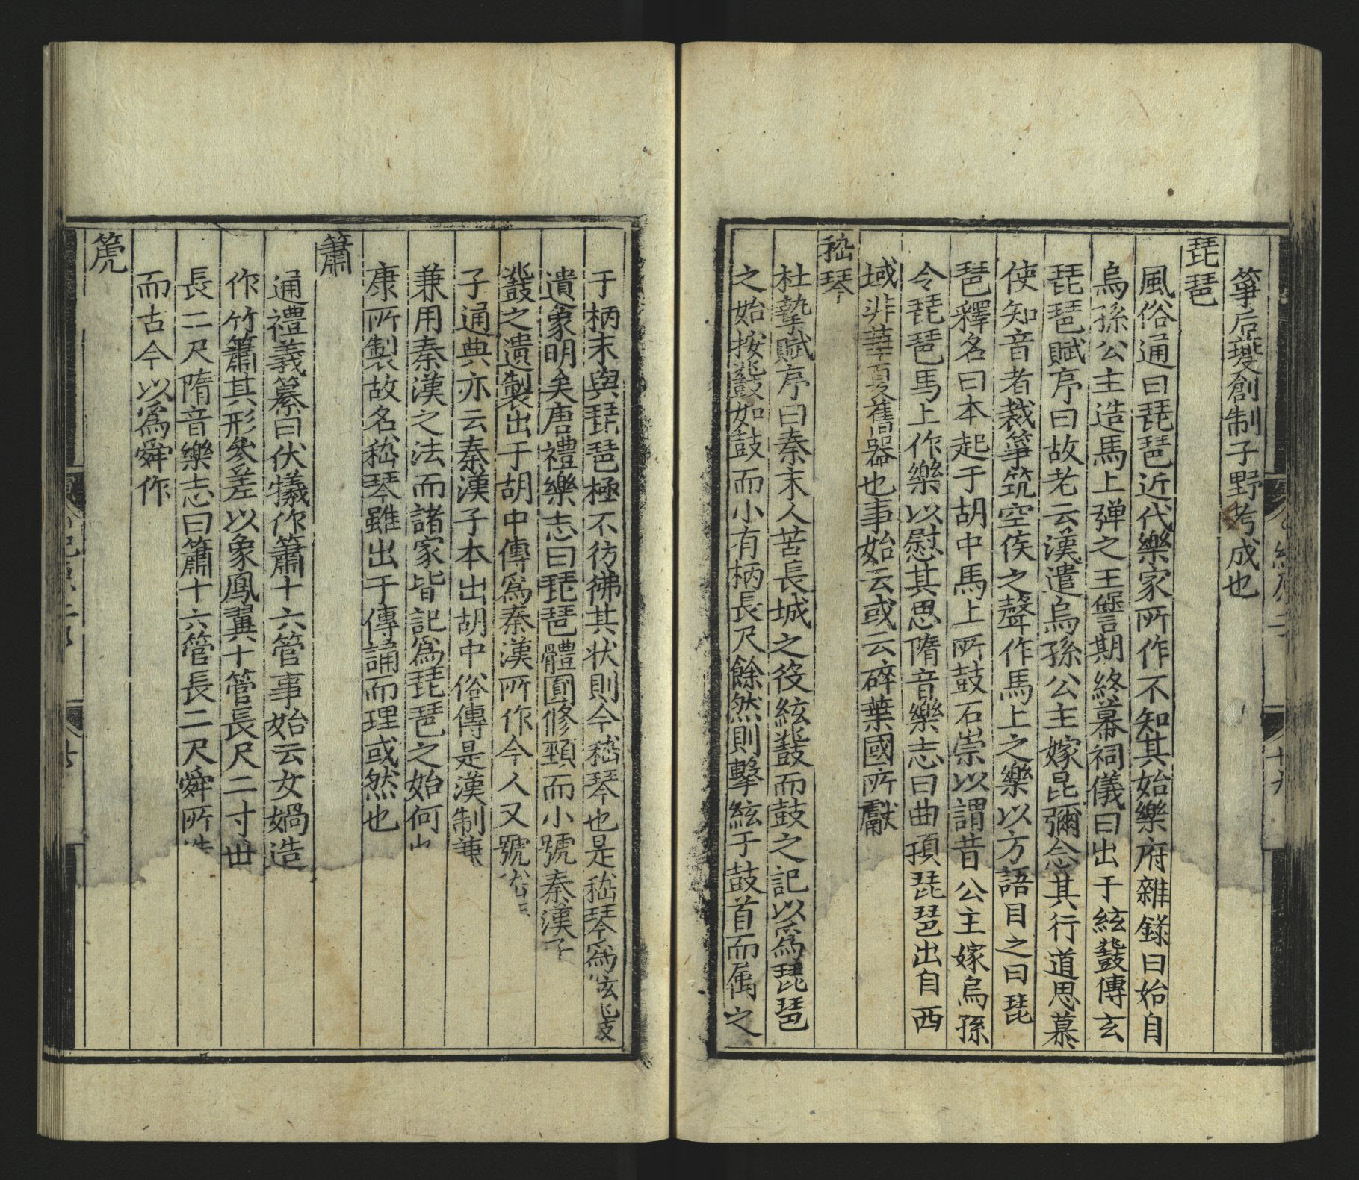 箏后夔創制子野考成也
琵琶
風俗通曰琵琶近代樂家所作不知其始樂府雜錄曰始自
烏孫公主造馬上弹之王壆期終幕祠儀曰出于絃鼗傅玄
琵琶賦序曰故老云漢遣烏孫公主嫁昆彌念其行道思慕
使知音者裁箏筑空侯之聲作馬上之樂以方語目之曰琵
琶釋名曰本起于胡中馬上所鼓石崇以謂昔公主嫁烏孫
令琵琶馬上作樂以慰其思隋音樂志曰曲項琵琶出自西
域非華夏舊器也事始云或云碎葉國所獻
嵇琴
杜摯賦序曰秦末人苦長城之役絃鼗而鼓之記以為琵琶
之始按鼗如鼓而小有柄長尺餘然則擊絃于鼓首而属之
于柄末與琵琶極不彷彿其状則今嵇琴也是嵇琴為絃鼗
遺象明矣唐禮樂志曰琵琶體圓修頸而小號秦漢子
鼗之遺製出于胡中傳爲秦漢所作今人又號
子通典亦云秦漢子本出胡中俗傳是漢制兼
兼用秦漢之法而諸家皆記爲琵琶之始何
康所製故名嵇琴雖出于傳誦而理或然也
簫
通禮義纂曰伏犧作簫十六管事始云女媧造
作竹簫其形參差以象鳳翼十管長尺二寸世
長二尺隋音樂志曰簫十六管長二尺舜所
而古今以爲舜作
篪